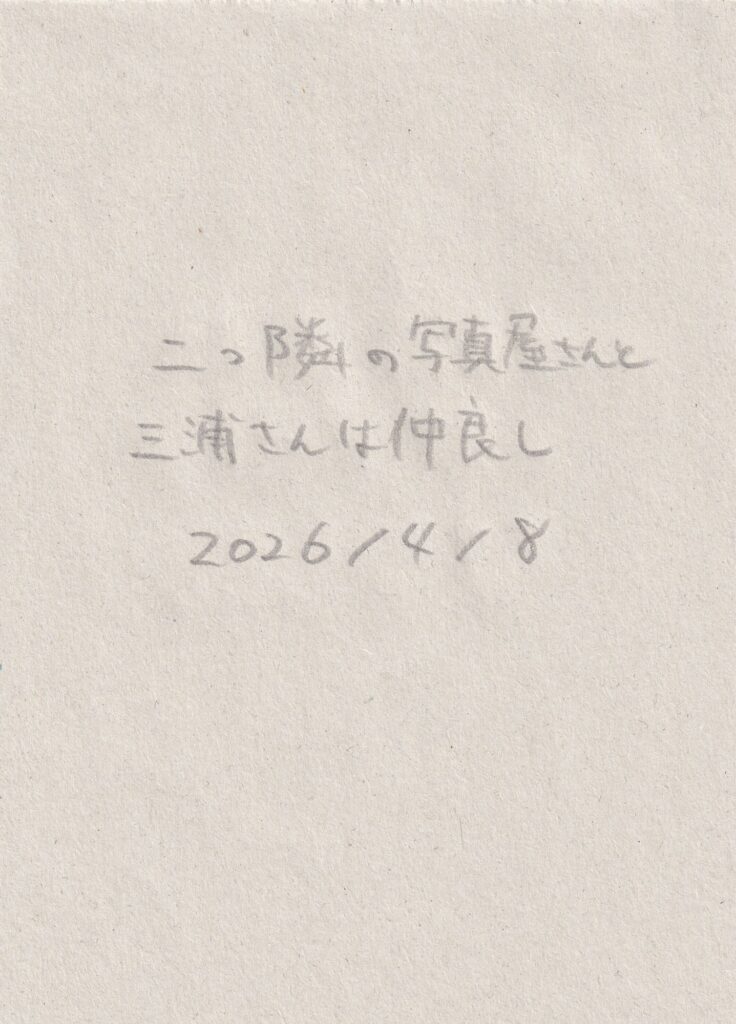 二つ隣の写真屋さんと
三浦さんは仲良し
2026/4/8